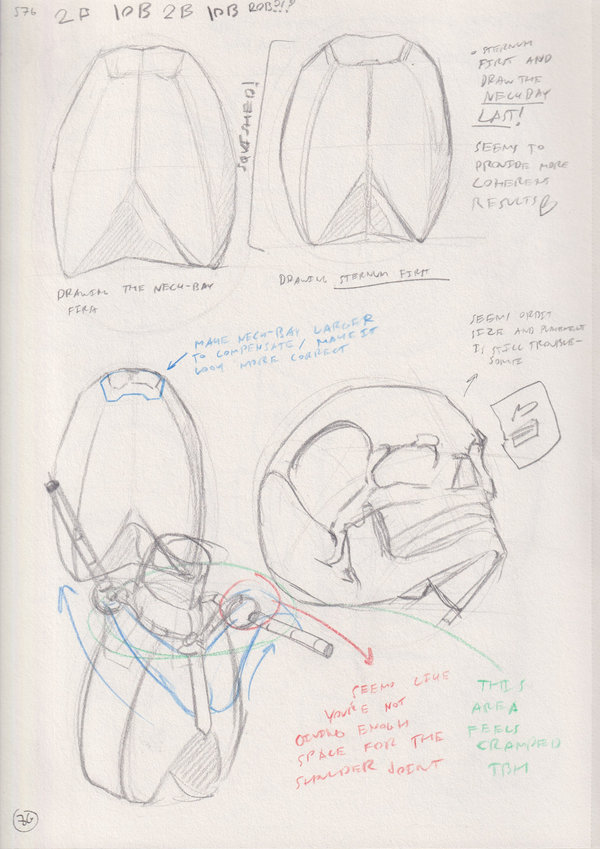 576 2B 10B 2B 10B ROB?!?
SQUISHED!
• STERNUM
FIRST AND
DRAW THE
NECK-BAY
LAST!
SEEMS TO
PROVIDE MORE
COHERENT
RESULTS
DRAWING THE NECK-BAY
FIRST
DRAWING STERNUM FIRST
MAKE NECK-BAY LARGER
TO COMPENSATE/MAKE IT
LOOK MORE CORRECT
SEEMS ORBIT
SIZE AND PLACEMENT
IS STILL TROUBLE-
SOME
SEEMS LIKE
YOU'RE NOT
GIVING ENOUGH
SPACE FOR THE
SHOULDER JOINT
THIS
AREA
FEELS
CRAMPED
TBH
76